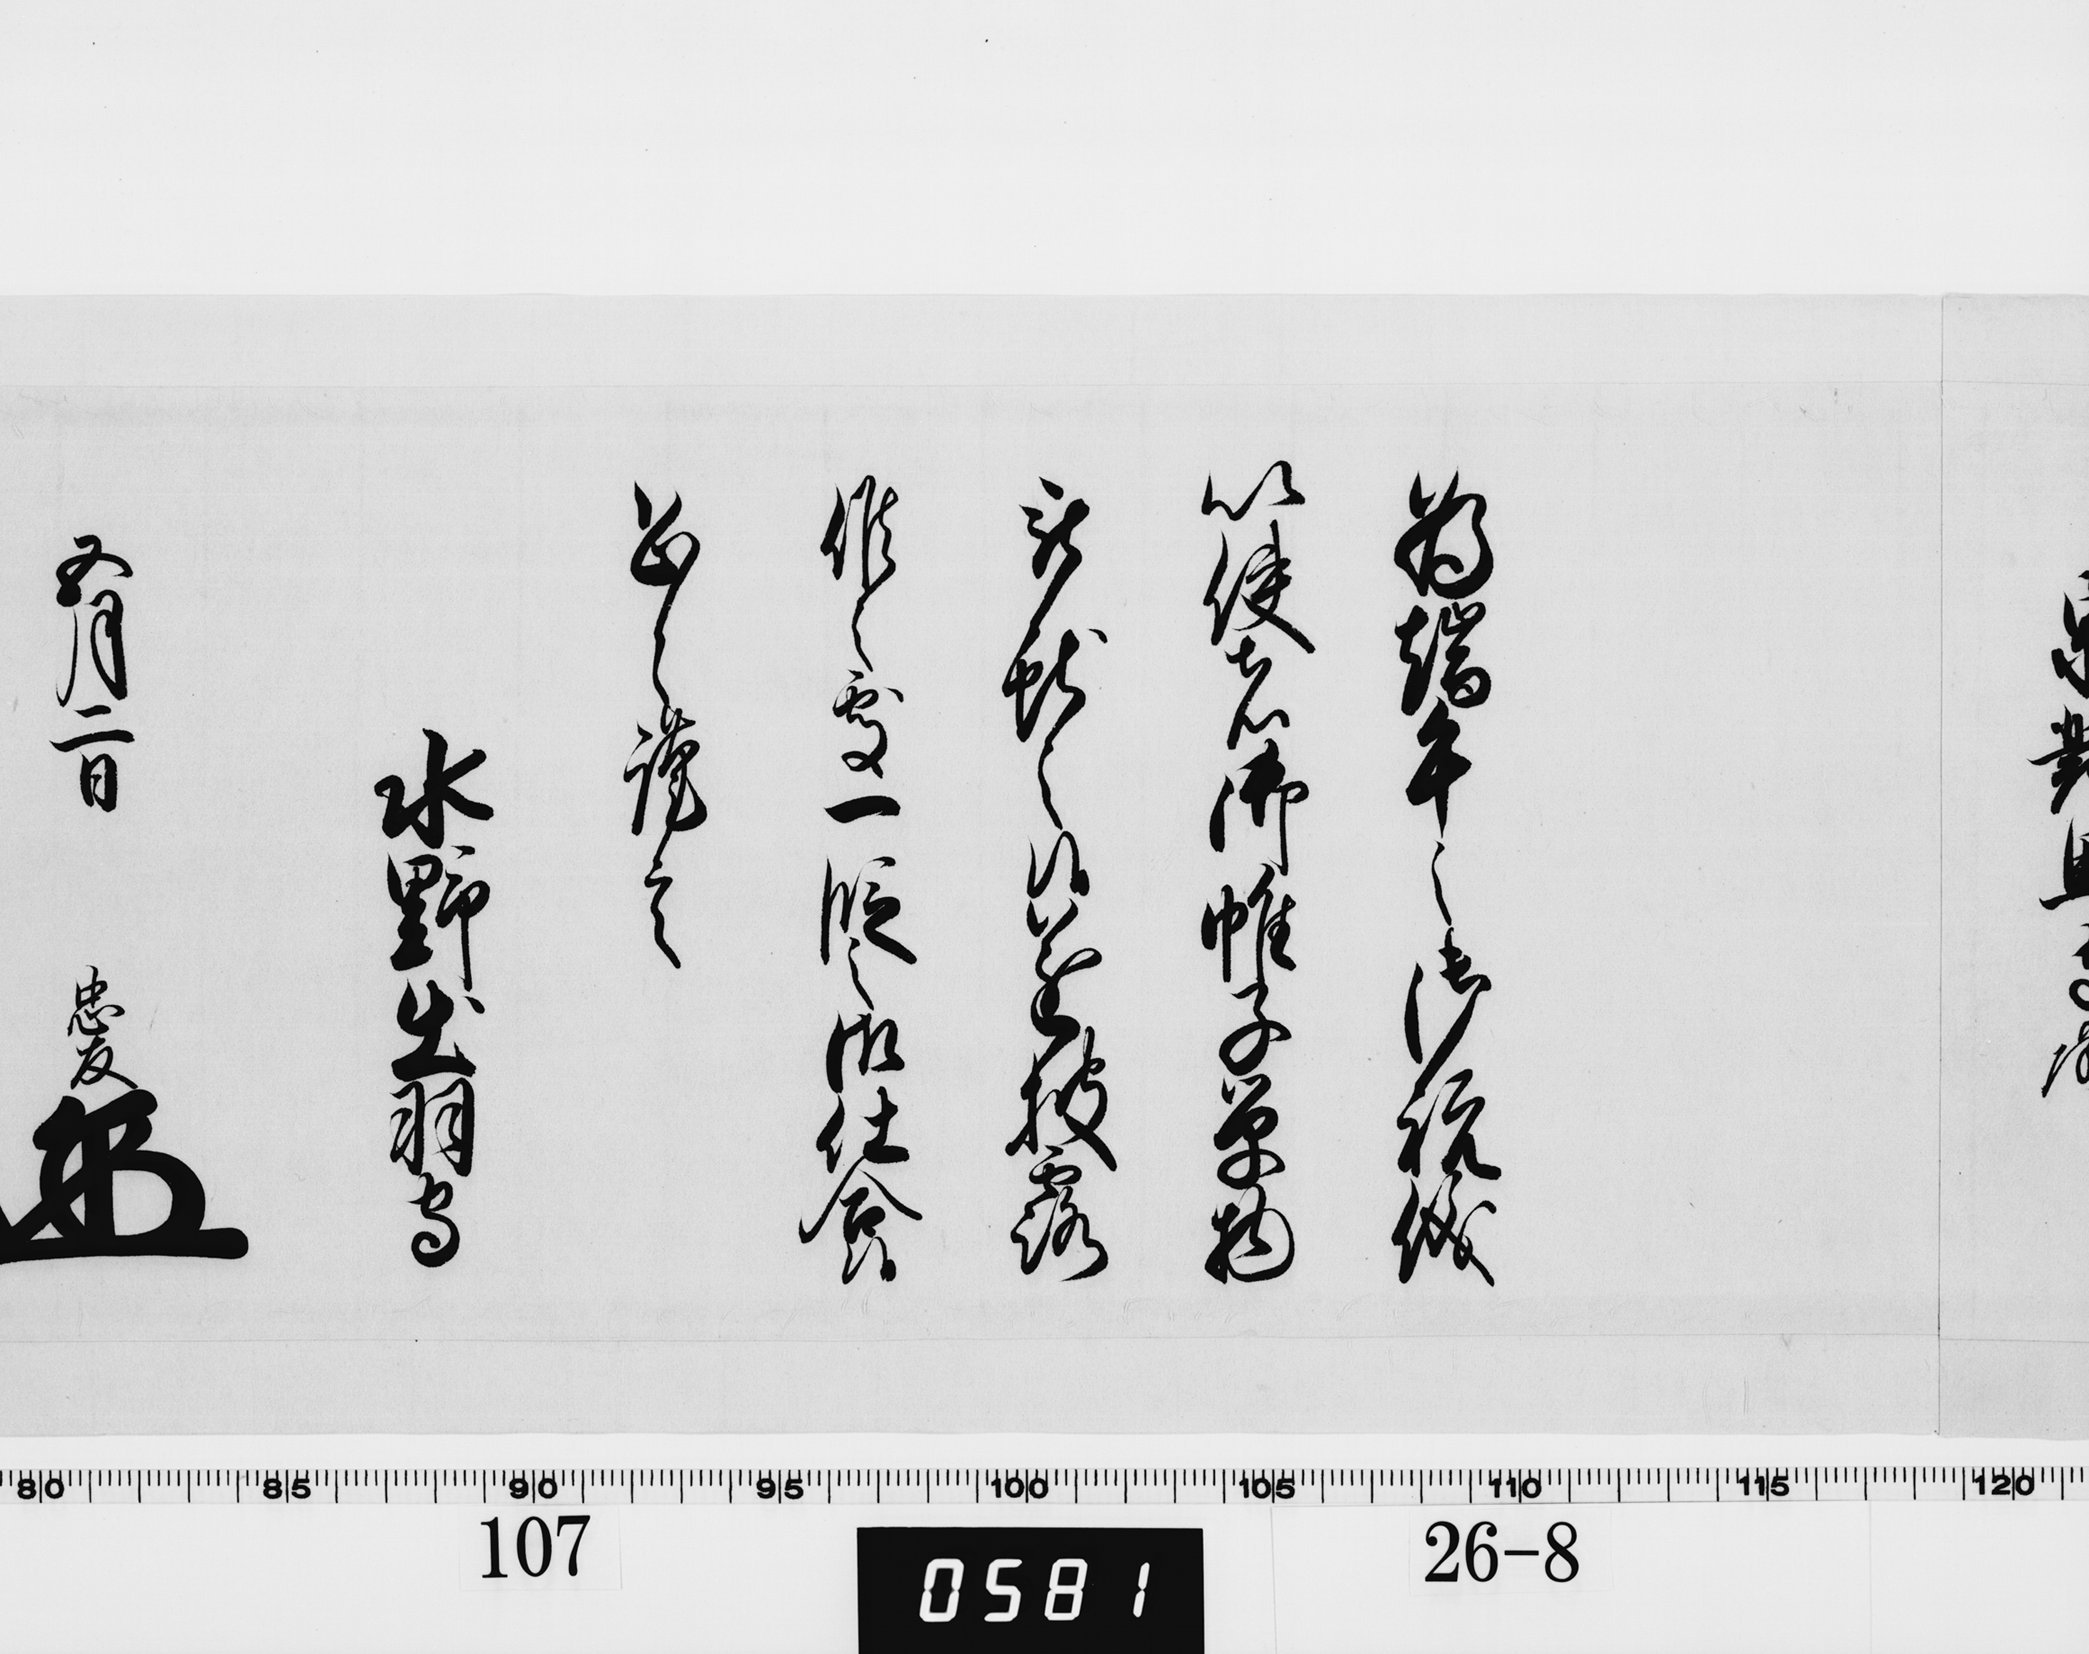 宗對馬守殿
為端午之御祝儀
以使者御帷子単物
被献之候遂披露
候之處一段之御仕合候
恐々謹言
水野出羽守
五月二日 忠友
80 85 90 95 100 105 110 115 120
107 26-8
0581